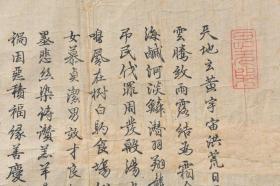 天地玄黃宇宙洪荒日
雲騰致雨露結為霜
海鹹河淡鱗潛羽翔
吊民伐罪周發殷湯
鳴鳳在樹白駒食場
女慕貞潔男效才良
墨悲絲染詩讚羔羊
禍因惡積福緣善慶